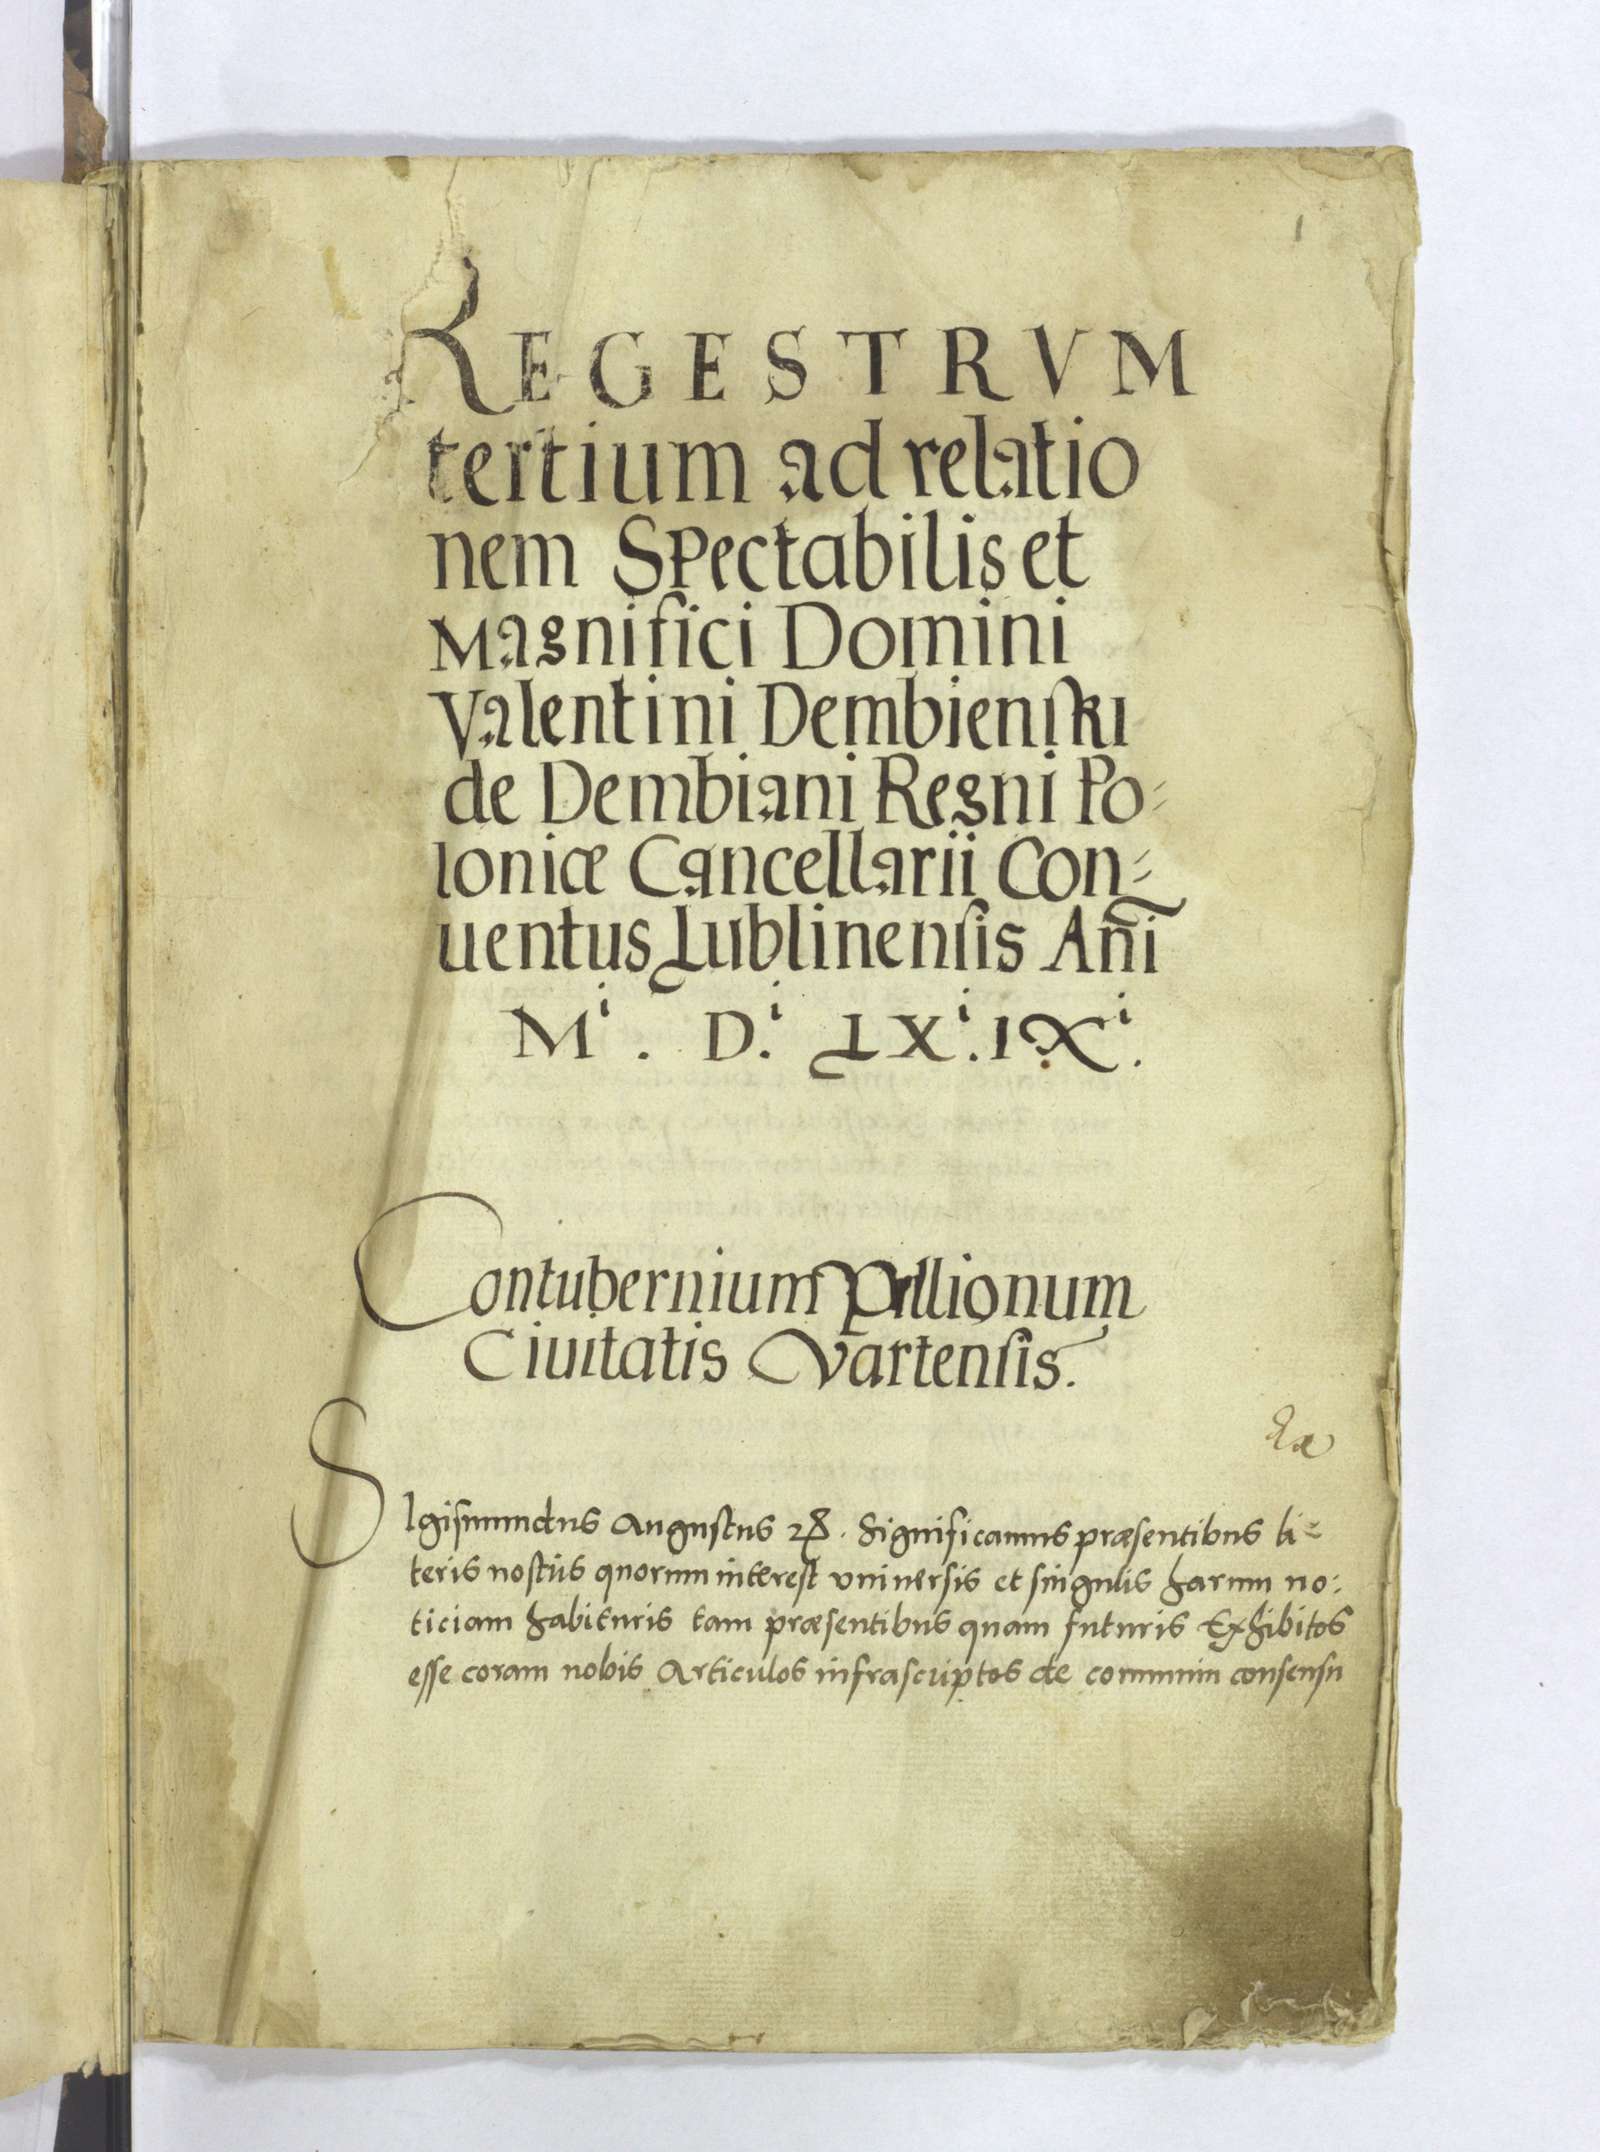 1
REGESTRVM
tertium ad relatio
nem Spectabilis et
Magnifici Domini
Valentini Dembienſki
de Dembiani Regni Po⸗
loniæ Cancellarii Con⸗
uentus Lublinenſis Ani̅
Mⁱ. D.ⁱ LXⁱ.IXⁱ.
Contubernium Pellionum
Ciuitatis Vartenſis.
SIgiſmundus Auguſtus . Significamus præsentibus li⸗
teris nostris quorum interest vniuersis et singulis harum no:
ticiam habituris tam præsentibus quam futuris Exhibitos
esse coram nobis Articulos infrascriptos de communi consensu